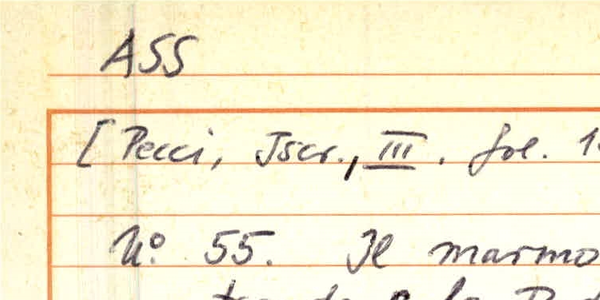 ASS
[Pecci, Iscr., III. fol.
No. 55. Il marmo